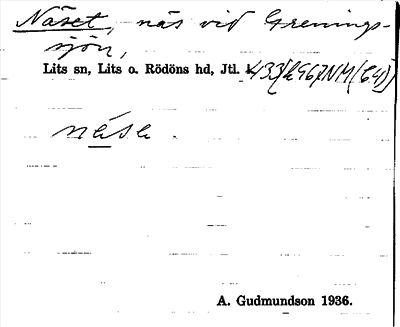 Näset, näs vid Grenings-
sjön,
Lits sn, Lits o. Rödöns hd, Jtl.
näsa.
A. Gudmundson 1936.